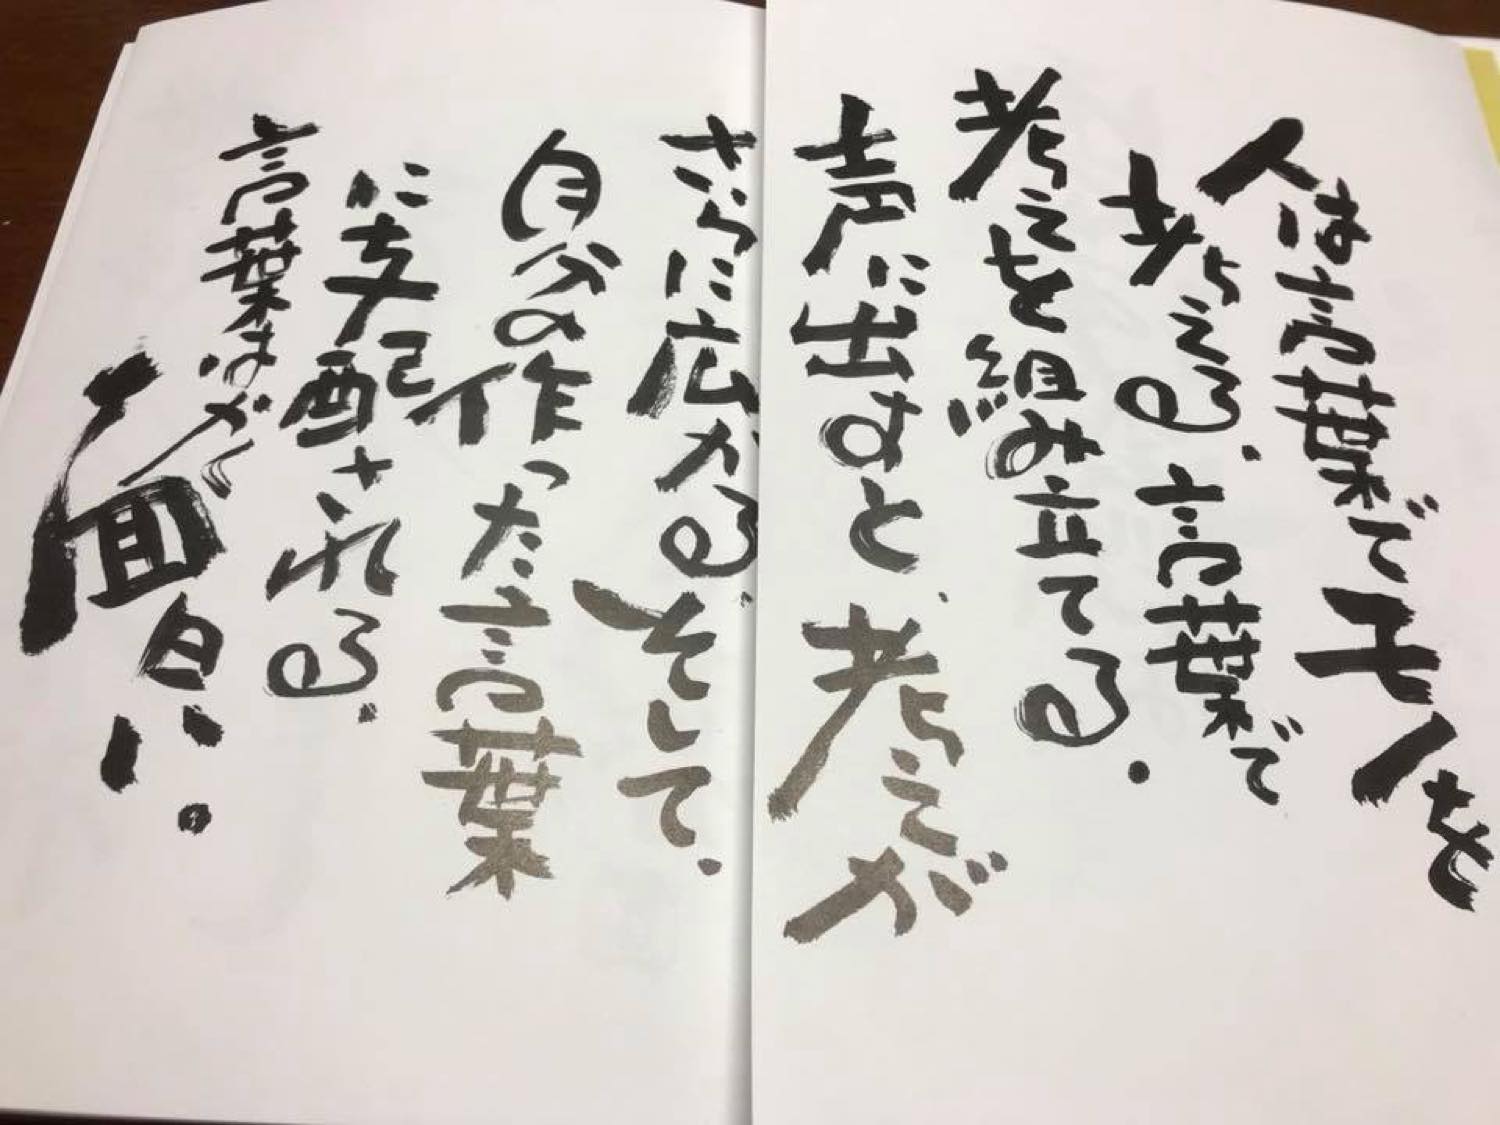 人は言葉でモノを
考える。言葉で
考えを組み立てる。
声に出すと、考えが
さらに広がる。そして、
自分の作った言葉
に支配される。
言葉は
面白い。